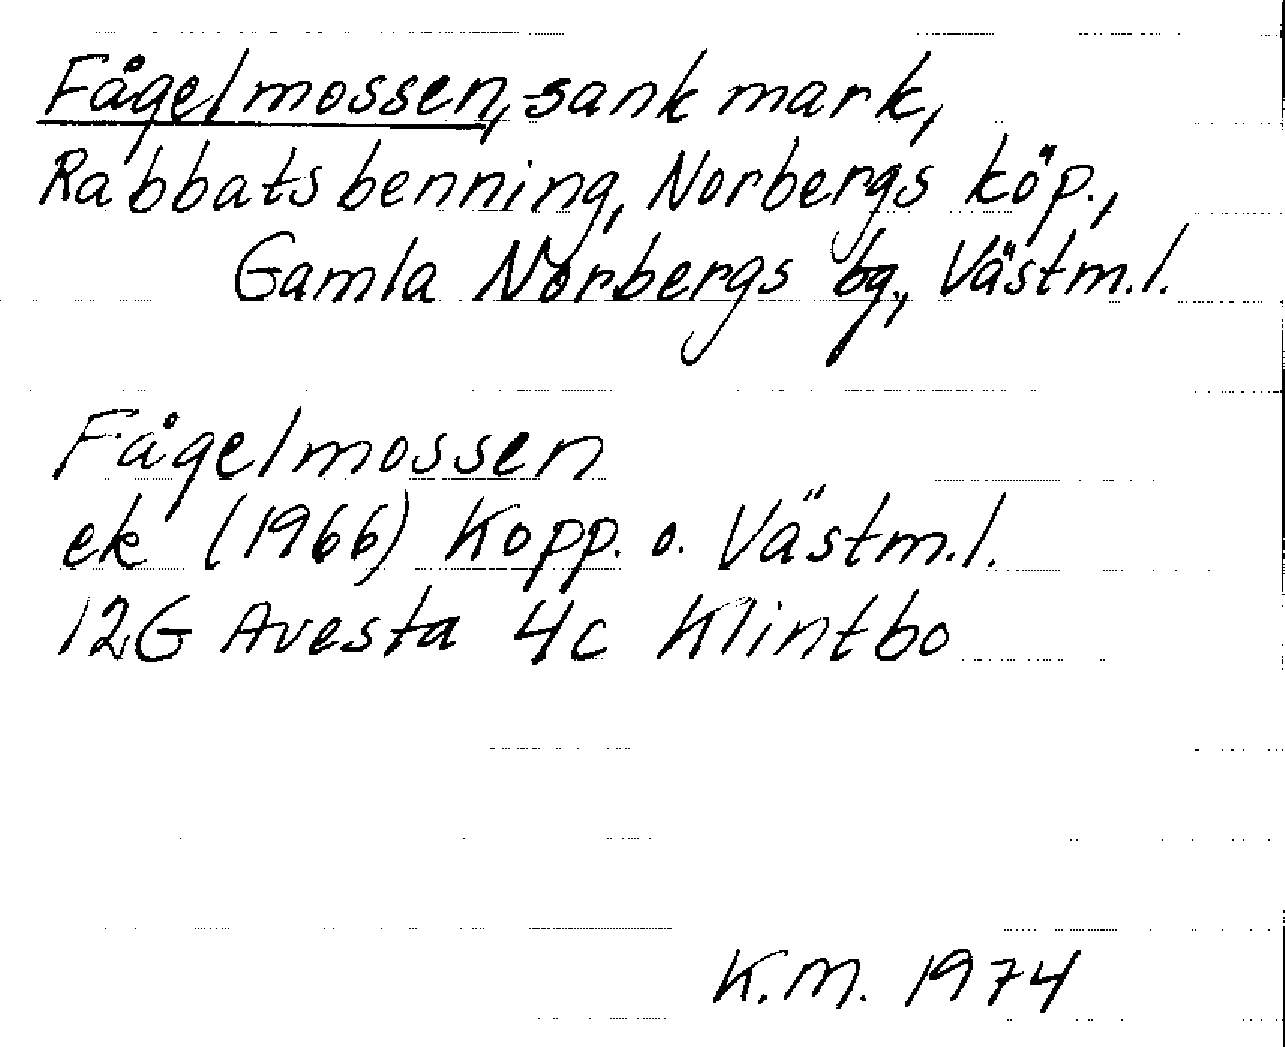 Fågelmossen, sank mark,
Rabbatsbenning, Norbergs köp.,
Gamla Norbergs bg., Västm.l.
Fågelmossen
ek (1966) Kopp. o. Västm.l.
12G Avesta 4c Klintbo
K.M. 1974